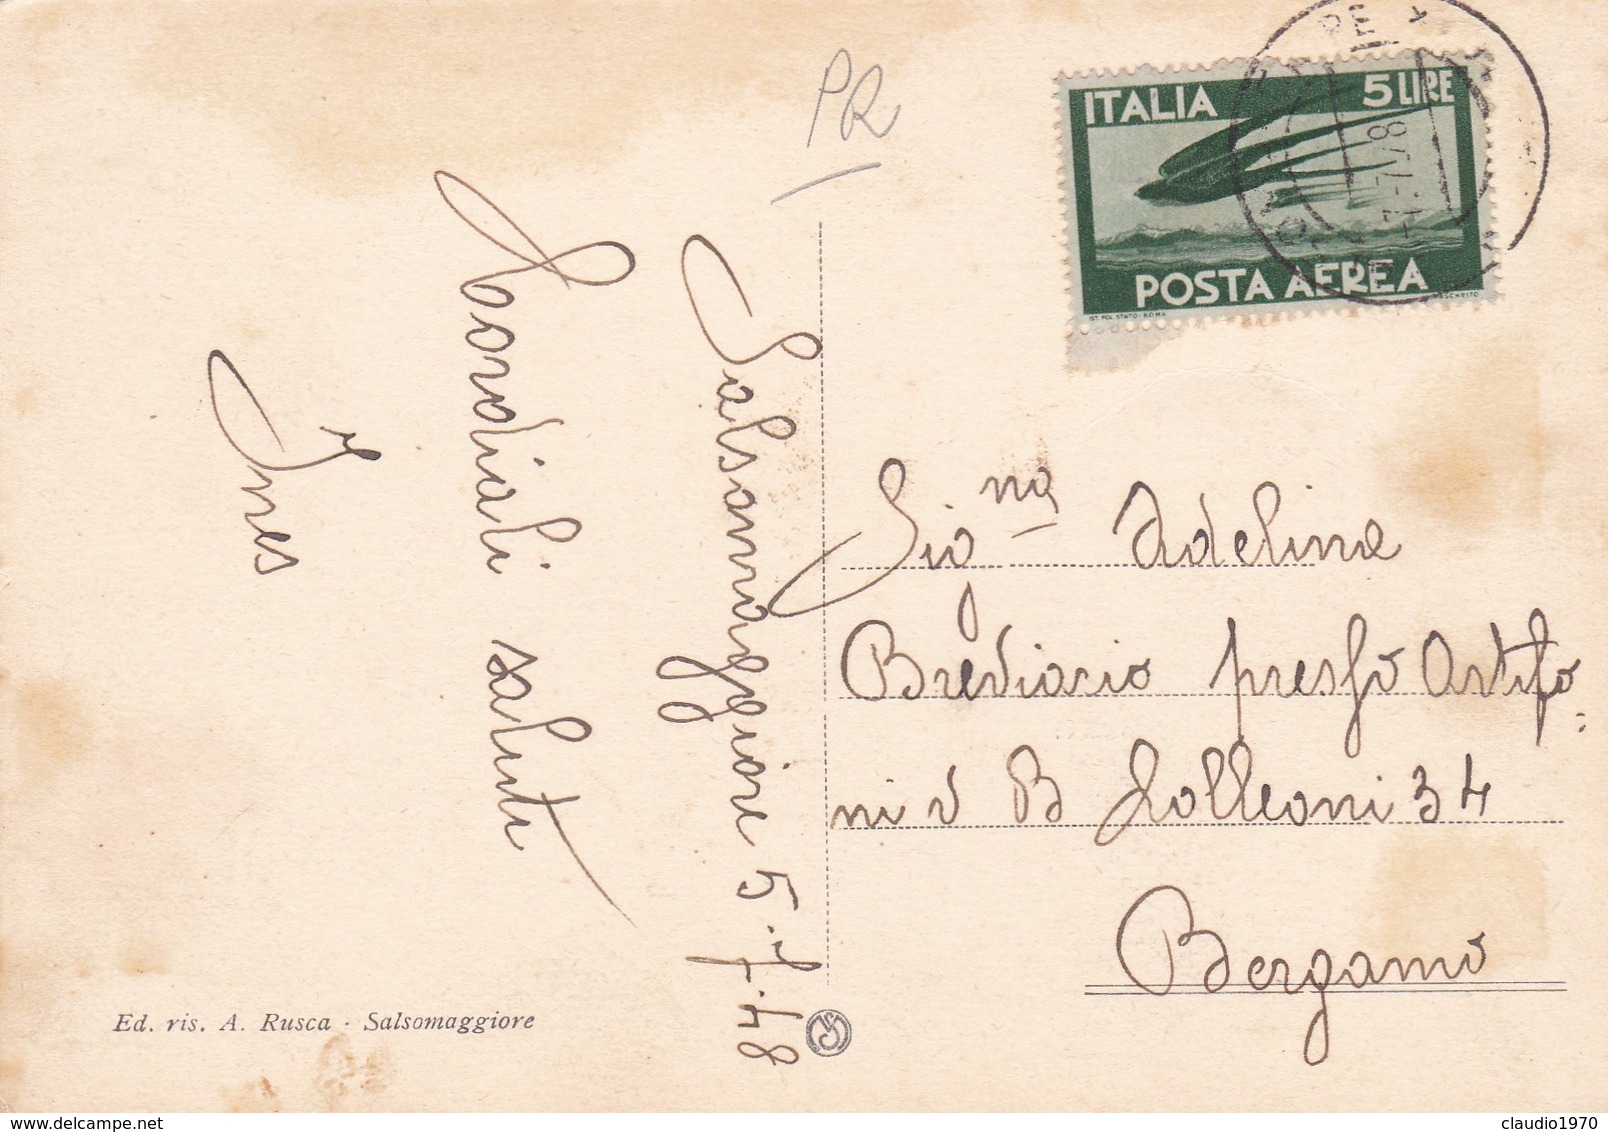 PR
ITALIA 5 LIRE
POSTA AEREA
IST. POL. STATO - ROMA
Salsomaggiore 5.7.48
Cordiali saluti
Ines
Sig.na Adelina
Breviario presso Artifo=
ni v B Colleoni 34
Bergamo
Ed. ris. A. Rusca - Salsomaggiore
claudio1970